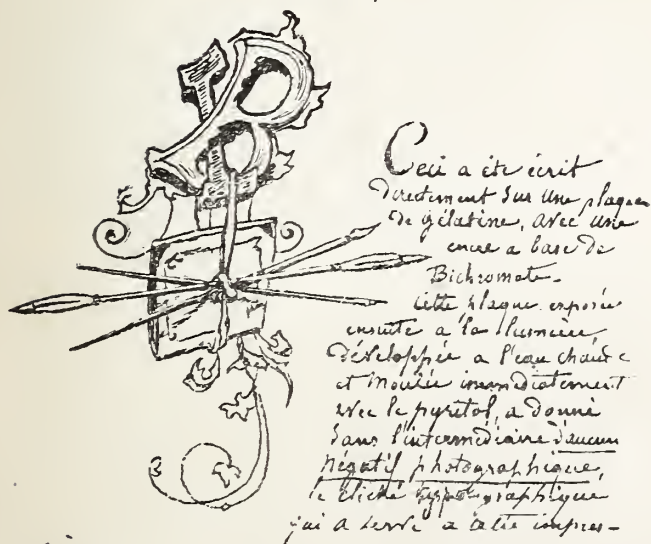 Ceci a été écrit
directement sur une plaque
de gélatine, avec une
encre a base de
Bichromate.
Cette plaque exposée
ensuite a la lumière,
développée a l'eau chaude
et Moulée immediatement
avec le pyritol, a donné
sans l'intermédiaire d'aucun
négatif photographique,
le cliché typographique
qui a servi a cette impres-